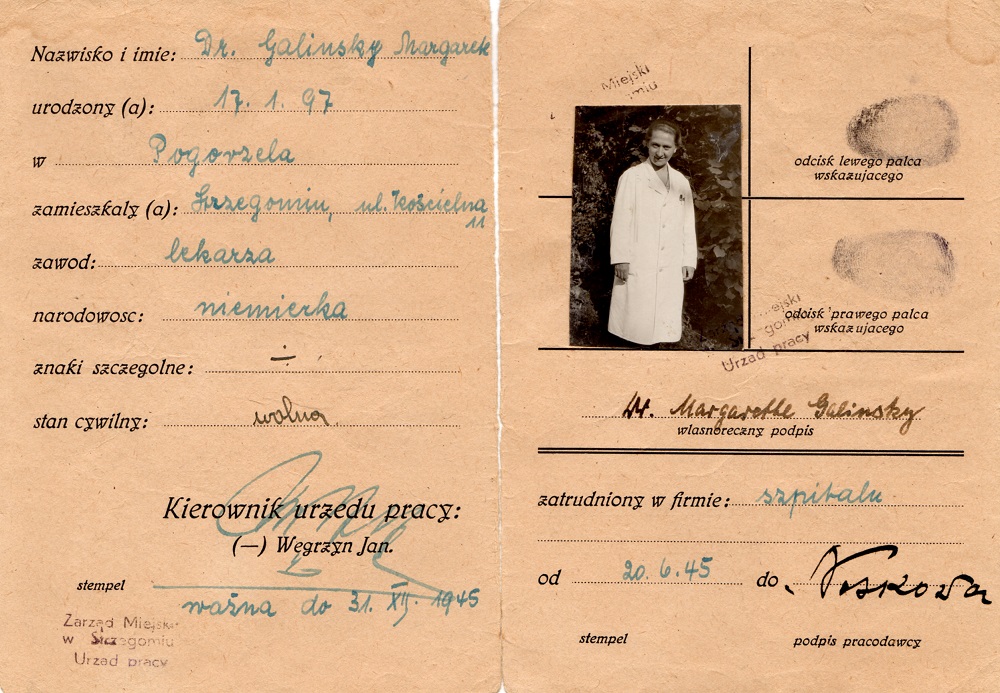 Nazwisko i imie: Dr. Galinsky Margarete
urodzony (a): 17. 1. 97
w Pogorzela
zamieszkaly (a): Strzegomiu, ul. Kościelna
11
zawod: lekarza
narodowosc: niemierka
znaki szczegolne: ÷
stan cywilny: wolna.
Kierownik urzedu pracy:
(—) Wegrzyn Jan.
stempel
ważna do 31. XII. 1945
Zarząd Miejski
w Strzegomiu
Urząd pracy
Miejski
omiu
odcisk lewego palca
wskazujacego
odcisk prawego palca
wskazujacego
ejski
gomiu
Urząd pracy
Dr. Margarethe Galinsky
wlasnoreczny podpis
zatrudniony w firmie: szpitalu
od 20. 6. 45 do
stempel
podpis pracodawcy